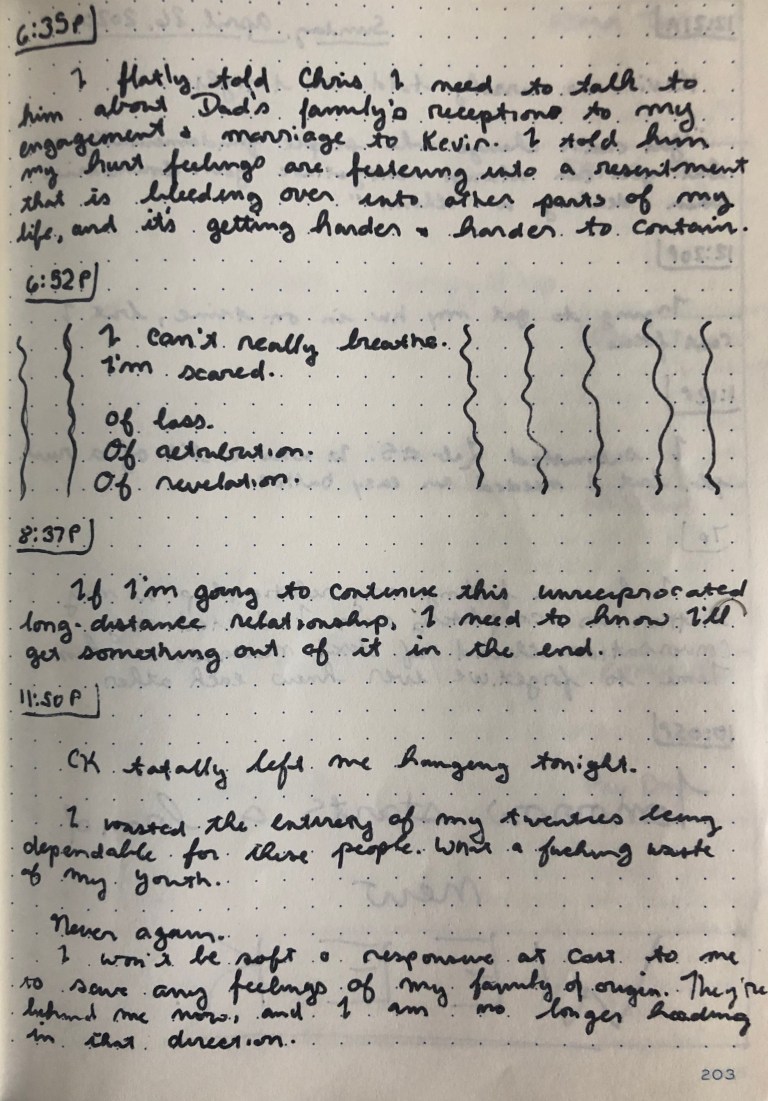 6:35P
I flatly told Chris I need to talk to
him about Dad's family's receptions to my
engagement & marriage to Kevin. I told him
my hurt feelings are festering into a resentment
that is bleeding over into other parts of my
life, and it's getting harder & harder to contain.
6:52P
I can't really breathe.
I'm scared.
Of loss.
Of retribution.
Of revelation.
8:37P
If I'm going to continue this unreciprocated
long-distance relationship, I need to know I'll
get something out of it in the end.
11:50P
CK totally left me hanging tonight.
I wasted the entirety of my twenties being
dependable for these people. What a fucking waste
of my youth.
Never again.
I won't be soft & responsive at cost to me
to save any feelings of my family of origin. They're
behind me now, and I am no longer heading
in that direction.
203